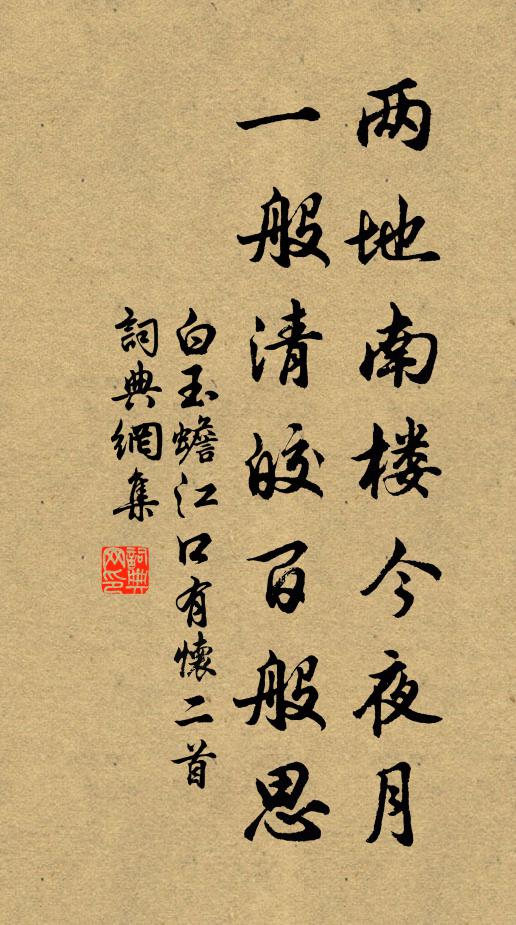 两地南楼今夜月
一般清皎百般思
白玉蟾江口有懷二首
詞典網集
詞典网印